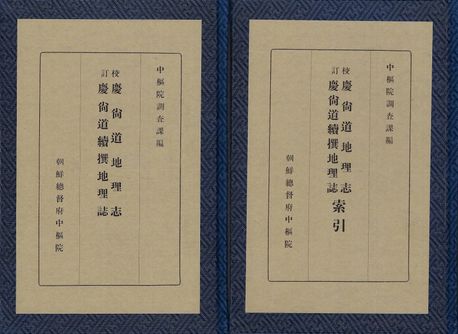 中樞院調査課編
校訂 慶尙道地理志
慶尙道續撰地理誌
朝鮮總督府中樞院
中樞院調査課編
校訂 慶尙道地理志
慶尙道續撰地理誌 索引
朝鮮總督府中樞院